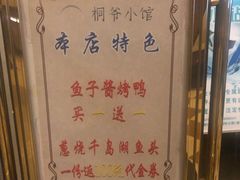 桐爷小馆
本店特色
鱼子酱烤鸭
买一送一
葱烧千岛湖鱼头
一份送100元代金券